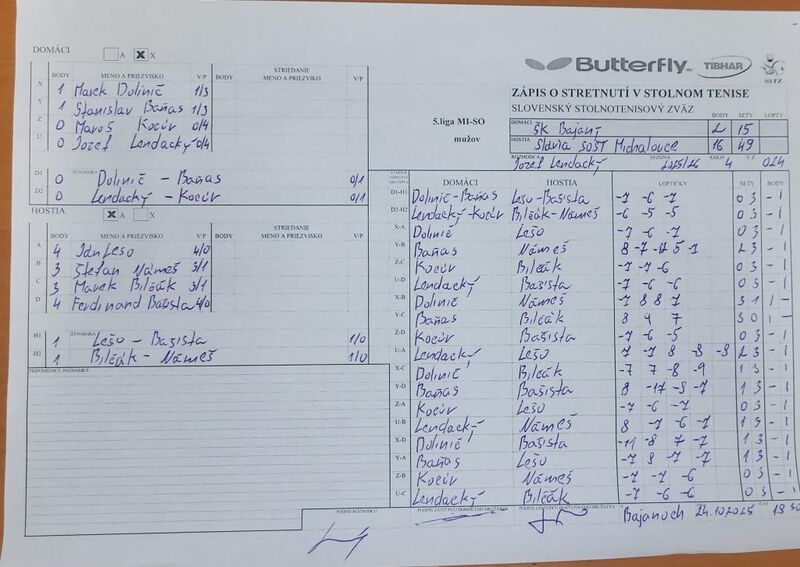 DOMÁCI A X X
BODY MENO A PRIEZVISKO V/P BODY STRIEDANIE MENO A PRIEZVISKO V/P
X 1 Marek Dolinič 1/3
Y 1 Stanislav Baňas 1/3
Z 0 Maroš Kocúr 0/4
U 0 Jozef Lendacký 0/4
D1 0 ŠTVORHRA Dolinič - Baňas 0/1
D2 0 Lendacký - Kocúr 0/1
HOSTIA X A X
BODY MENO A PRIEZVISKO V/P BODY STRIEDANIE MENO A PRIEZVISKO V/P
A 4 Ján Lešo 4/0
B 3 Štefan Námeš 3/1
C 3 Marek Bilčák 3/1
D 4 Ferdinand Bašista 4/0
H1 1 ŠTVORHRA Lešo - Bašista 1/0
H2 1 Bilčák - Námeš 1/0
PRIPOMIENKY, POZNÁMKY
Butterfly TIBHAR SSTZ
ZÁPIS O STRETNUTÍ V STOLNOM TENISE
SLOVENSKÝ STOLNOTENISOVÝ ZVÄZ
5.liga MI-SO
mužov
BODY SETY LOPTY
DOMÁCI ŠK Bajany 2 15
HOSTIA Slávia SOŠT Michalovce 16 49
ROZHODCA Jozef Lendacký SEZÓNA 2025/26 KOLO 4 Č.Z. 024
DOMÁCI HOSTIA LOPTIČKY SETY BODY
D1-H1 Dolinič-Baňas Lešo-Bašista -7 -6 -7 0 3 - 1
D2-H2 Lendacký-Kocúr Bilčák-Námeš -6 -5 -5 0 3 - 1
X-A Dolinič Lešo -7 -6 -7 0 3 - 1
Y-B Baňas Námeš 2 3 - 1
Z-C Kocúr Bilčák -7 -7 -6 0 3 - 1
U-D Lendacký Bašista -7 -6 -6 0 3 - 1
X-B Dolinič Námeš -7 8 8 7 3 1 1 -
Y-C Baňas Bilčák 8 9 7 3 0 1 -
Z-D Kocúr Bašista -7 -6 -5 0 3 - 1
U-A Lendacký Lešo 7 -7 8 -8 -8 2 3 - 1
X-C Dolinič Bilčák -7 7 -8 -9 1 3 - 1
Y-D Baňas Bašista 8 -17 -8 -7 1 3 - 1
Z-A Kocúr Lešo -7 -6 -7 0 3 - 1
U-B Lendacký Námeš 8 -7 -6 -7 1 3 - 1
X-D Dolinič Bašista -11 -8 7 -7 1 3 - 1
Y-A Baňas Lešo -7 8 -7 -7 1 3 - 1
Z-B Kocúr Námeš -7 -7 -6 0 3 - 1
U-C Lendacký Bilčák -7 -6 -6 0 3 - 1
PODPIS ROZHODCU PODPIS ZÁSTUPCU DOMÁCEHO DRUŽSTVA PODPIS ZÁSTUPCU HOSŤUJÚCEHO DRUŽSTVA Bajanoch 24.10.2025 ČAS 19 30